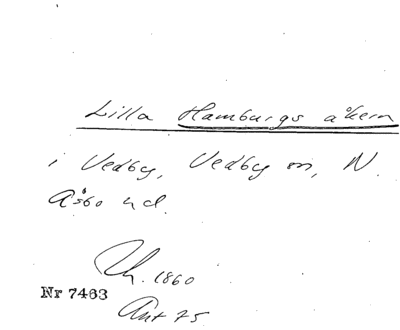 Lilla Hamburgs åkern
i Vedby, Vedby sn, N.
Åsbo hd.
Lh. 1860
Nr 7463
Akt 75